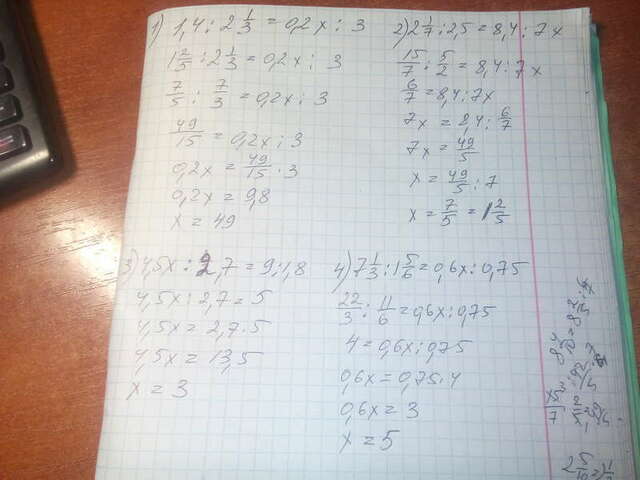 1) 1,4 : 2 1/3 = 0,2x : 3
1 2/5 : 2 1/3 = 0,2x : 3
7/5 : 7/3 = 0,2x : 3
49/15 = 0,2x : 3
0,2x = 49/15 · 3
0,2x = 9,8
x = 49
2) 2 1/7 : 2,5 = 8,4 : 7x
15/7 : 5/2 = 8,4 : 7x
6/7 = 8,4 : 7x
7x = 8,4 : 6/7
7x = 49/5
x = 49/5 : 7
x = 7/5 = 1 2/5
3) 4,5x : 2,7 = 9 : 1,8
4,5x : 2,7 = 5
4,5x = 2,7 · 5
4,5x = 13,5
x = 3
4) 7 1/3 : 1 5/6 = 0,6x : 0,75
22/3 : 11/6 = 0,6x : 0,75
4 = 0,6x : 0,75
0,6x = 0,75 · 4
0,6x = 3
x = 5